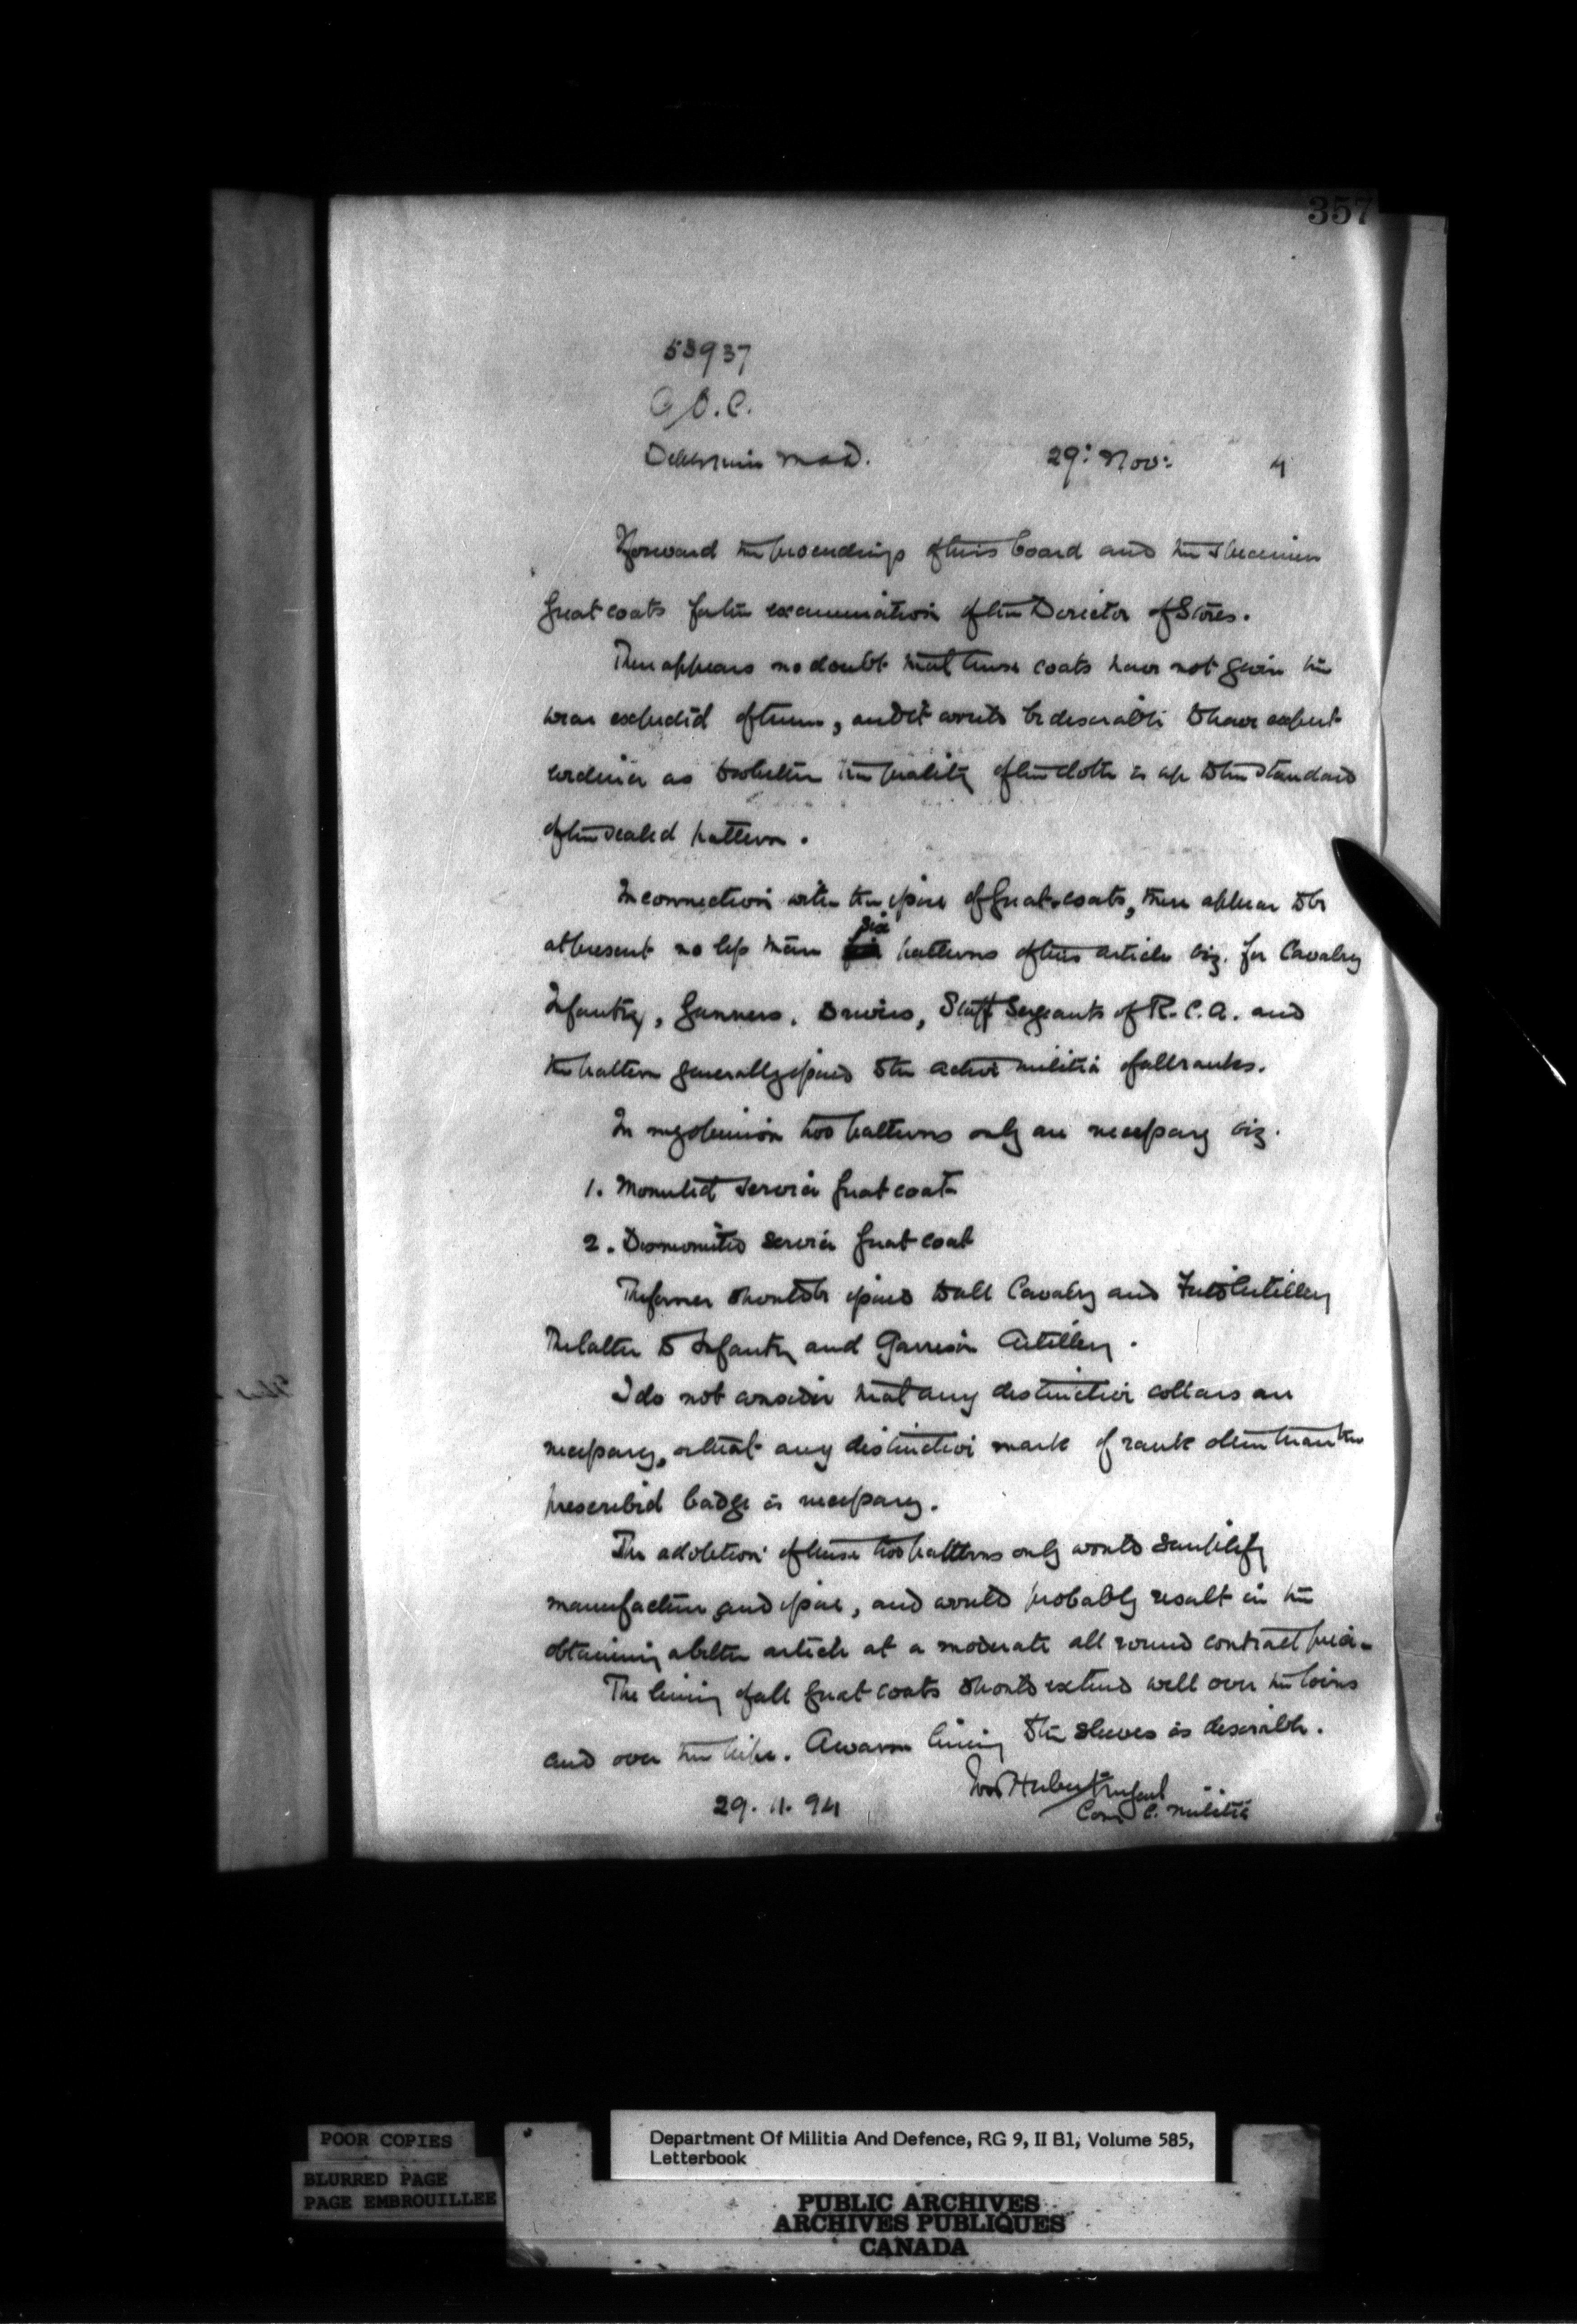 357
53937
G.O.C.
29: Nov: 4
I forward the proceedings of this board and the specimen
great coats for the examination of the Director of Stores.
There appears no doubt that these coats have not given the
wear expected of them, and it would be desirable to have expert
evidence as to whether the quality of the cloth is up to the standard
of the sealed pattern.
In connection with the issue of great-coats, there appear to be
at present no less than six patterns of this article viz. for Cavalry
Infantry, Gunners, Drivers, Staff Sergeants of R.C.A. and
the pattern generally issued to the active militia of all ranks.
In my opinion two patterns only are necessary viz.
1. Mounted service great coat
2. Dismounted service great coat
The former should be issued to all Cavalry and Field Artillery
The latter to Infantry and Garrison Artillery.
I do not consider that any distinctive collars are
necessary, or that any distinctive mark of rank other than the
prescribed badge is necessary.
The adoption of these two patterns only would simplify
manufacture and issue, and would probably result in the
obtaining a better article at a moderate all round contract price.
The lining of all great coats should extend well over the loins
and over the hips. A warm lining to the sleeves is desirable.
Herbert
29.11.94 Com C. Militia
POOR COPIES
BLURRED PAGE
PAGE EMBROUILLEE
Department Of Militia And Defence, RG 9, II B1, Volume 585,
Letterbook
PUBLIC ARCHIVES
ARCHIVES PUBLIQUES
CANADA